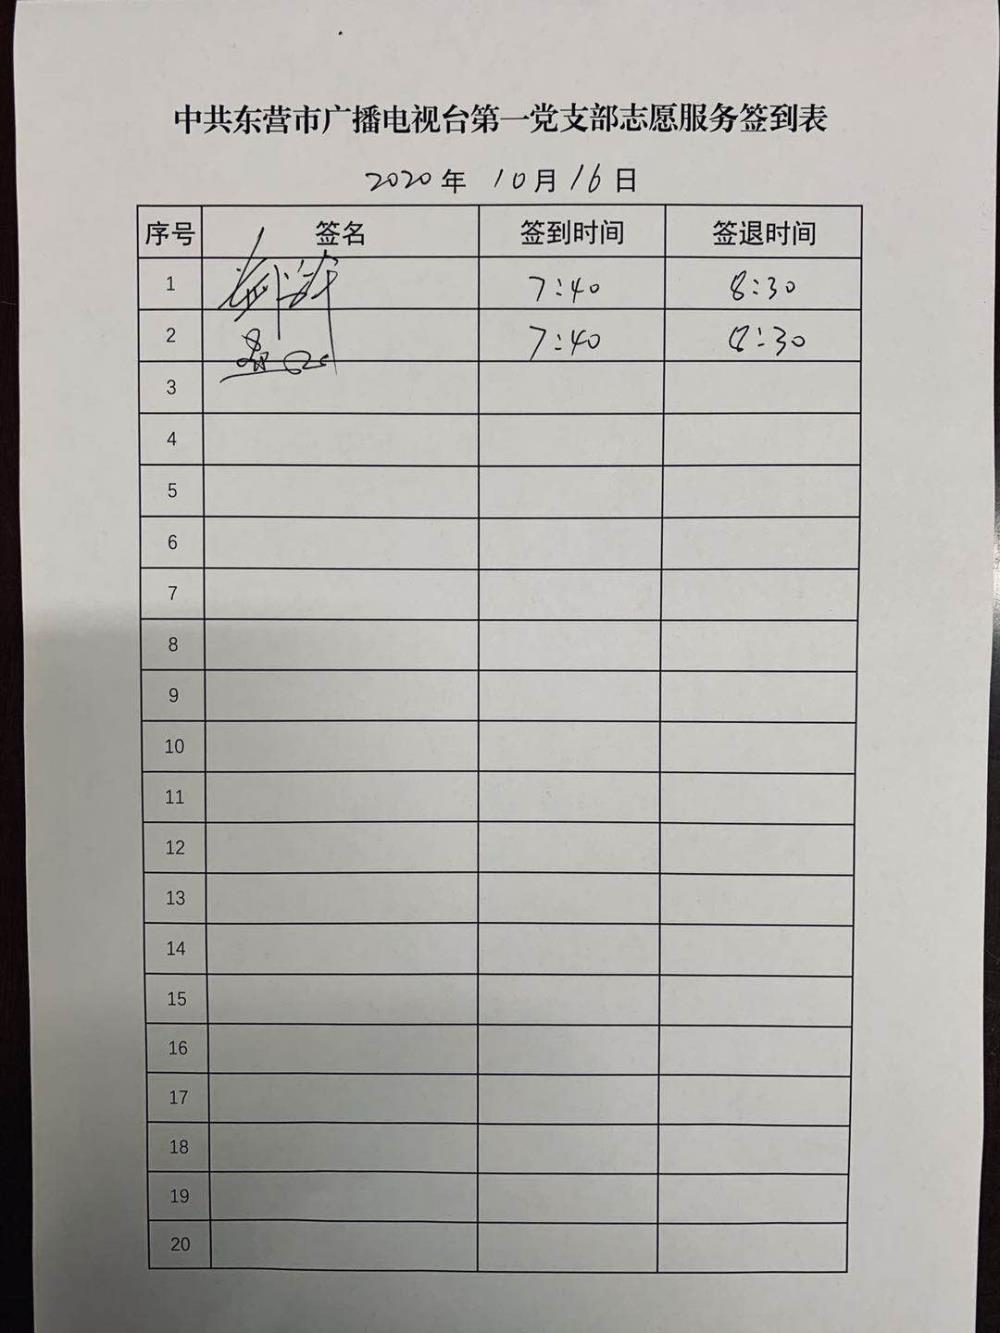 中共东营市广播电视台第一党支部志愿服务签到表
2020年 10月16日
序号 签名 签到时间 签退时间
1 7:40 8:30
2 7:40 8:30
3
4
5
6
7
8
9
10
11
12
13
14
15
16
17
18
19
20